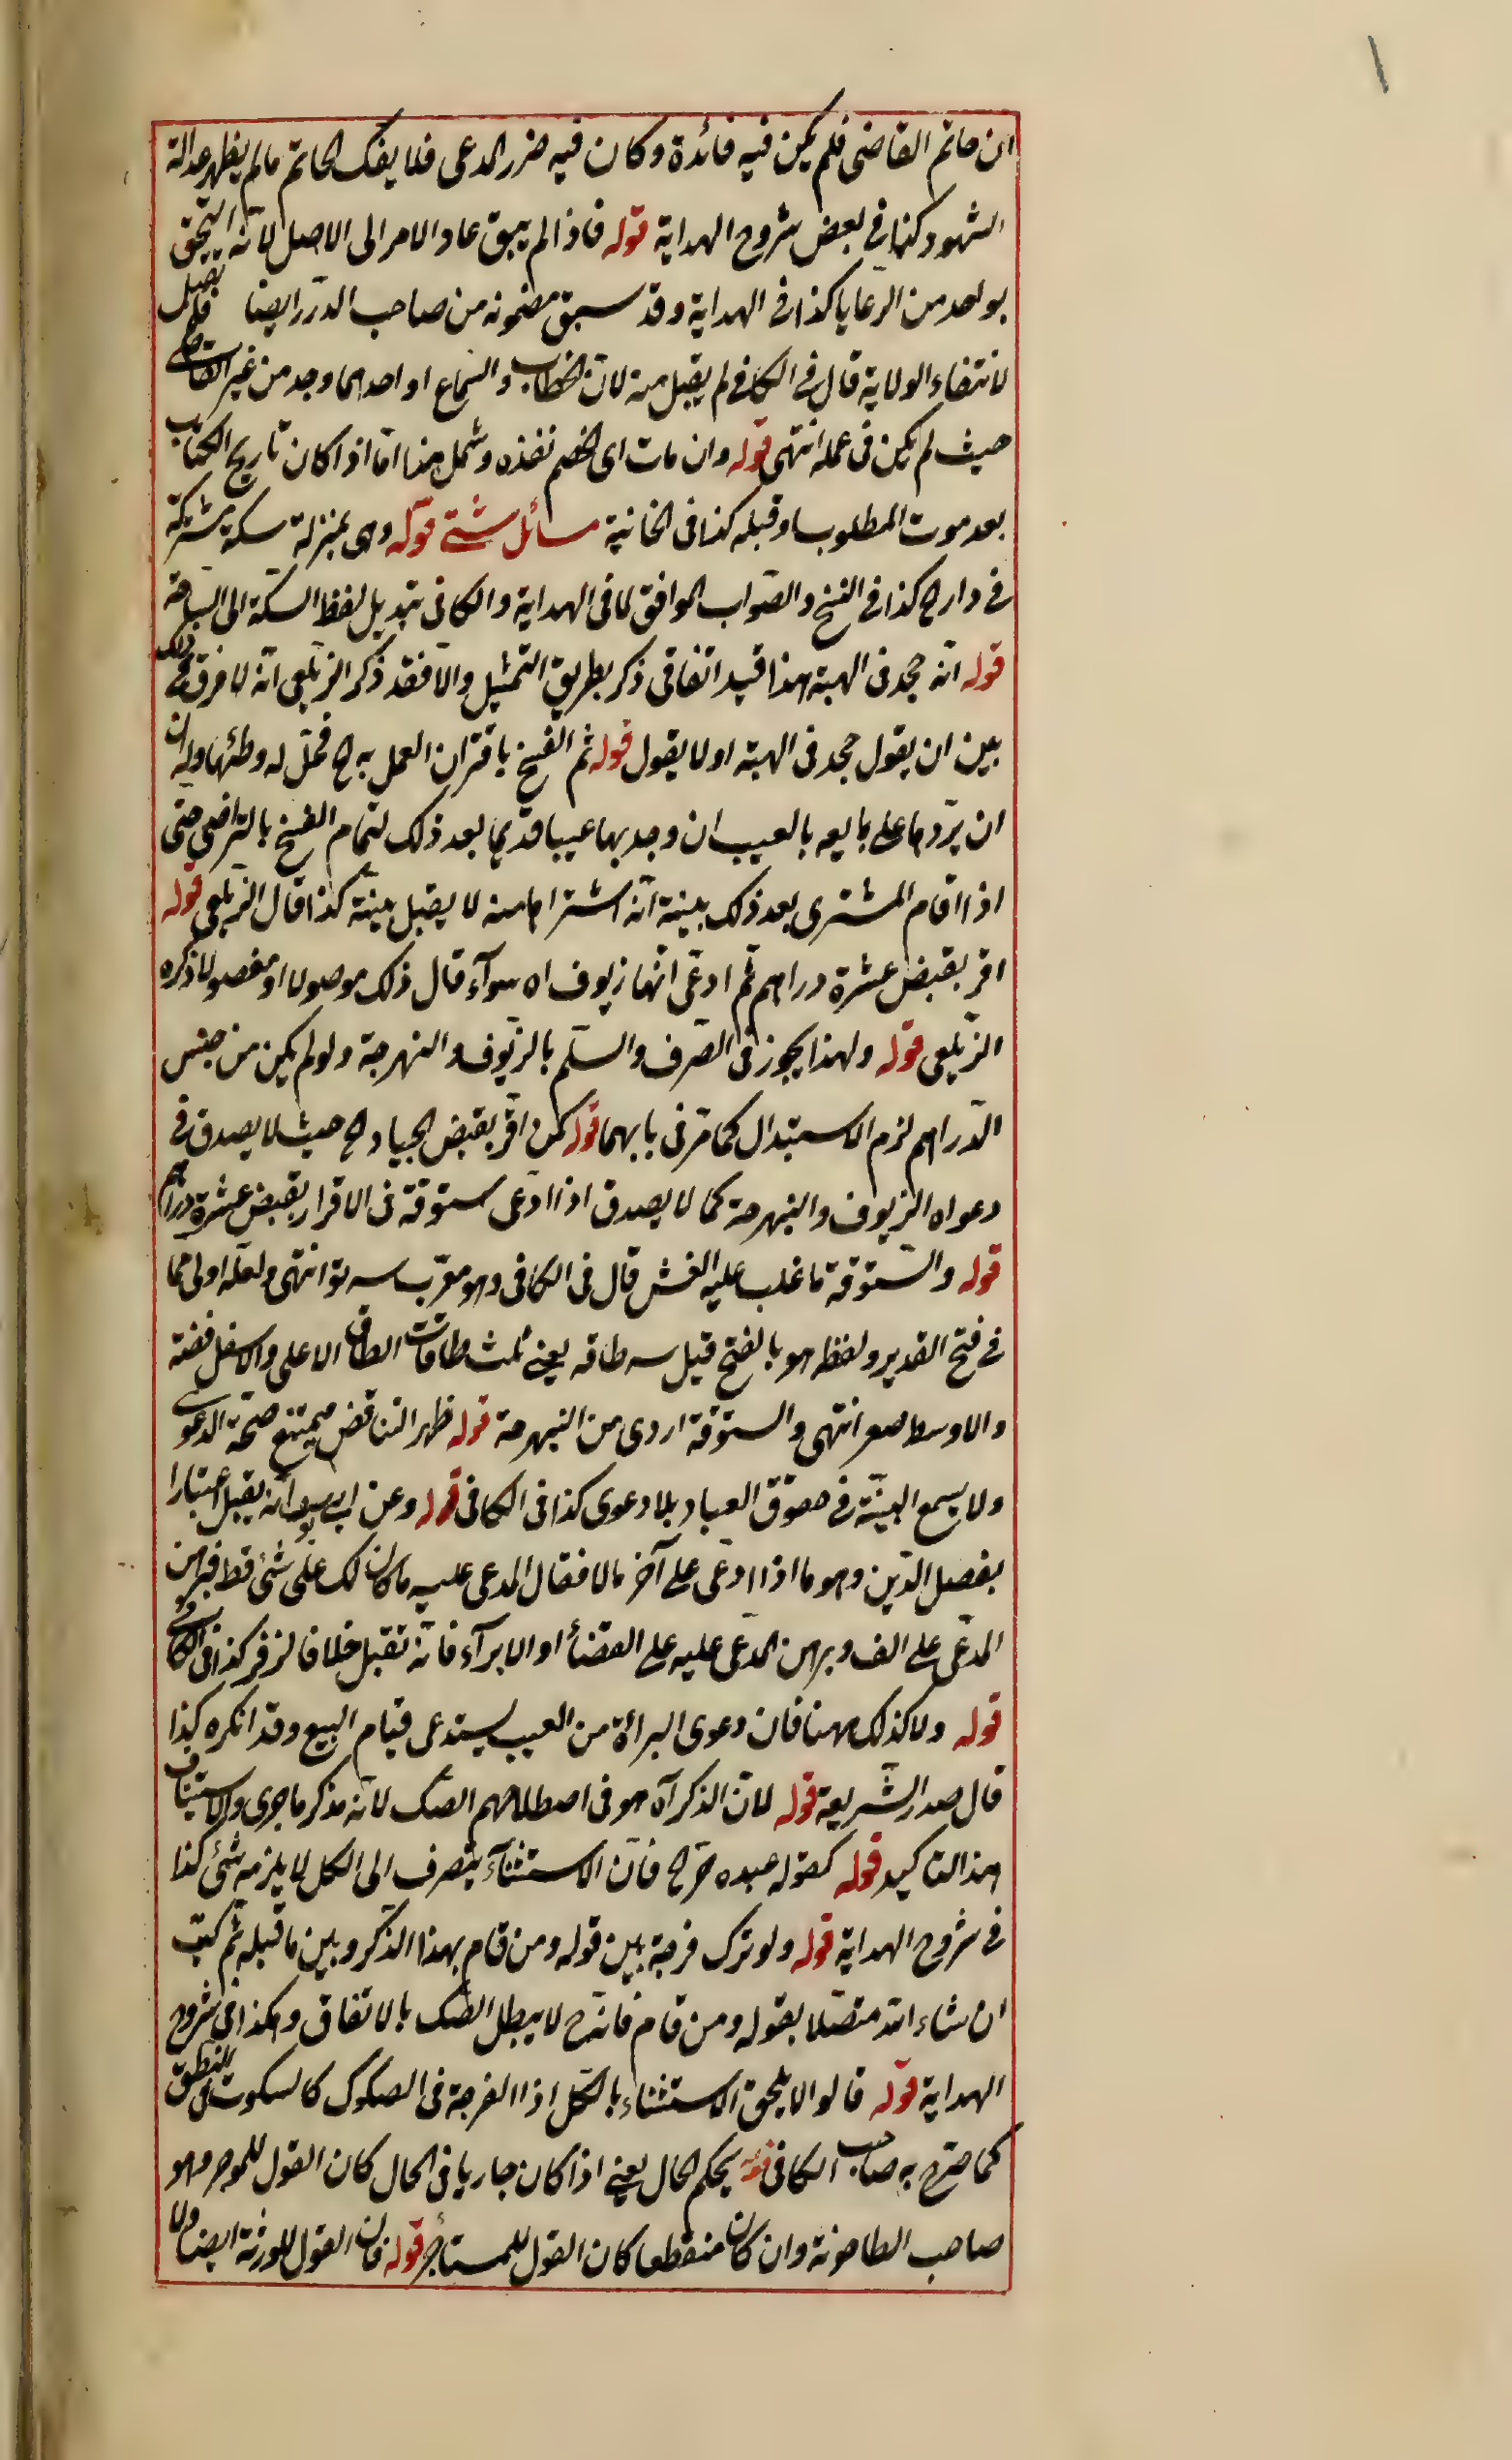 ان خاتم القاضى فلم يكن فيه فائدة وكان فيه ضرر المدعى فلا يفك الخاتم مالم يظهر عدالة
الشهود كذا فى بعض شروح الهداية قوله فاذا لم يبق عاد الامر الى الاصل لانه التحق
بواحد من الرعايا كذا فى الهداية وقد سبق مضمونه من صاحب الدرر ايضا فلم تصل
لانتفاء الولاية قال فى الكافى لم يقبل منه لان الخطاب والسماع او احدهما وجد من غير القاضى
حيث لم يكن فى عمله انتهى قوله وان مات اى الخصم نفذه وشمل هذا اما اذا كان تاريخ الكتاب
بعد موت المطلوب او قبله كذا فى الخانية مسائل شتى قوله وهى بمنزلة سكة مشتركة
فى دار ح كذا فى النسخ والصواب الموافق لما فى الهداية والكافى تبديل لفظ السكة الى الساحة
قوله انه جحد فى الهبة هذا قيد اتفاقى ذكر بطريق التمثيل والا فقد ذكر الزيلعى انه لا فرق فى ذلك
بين ان يقول جحد فى الهبة او لا يقول قوله ثم الفسخ باقتران العمل به ح فحل له وطئها وله ان
ان يردها على بايعه بالعيب ان وجد بها عيبا قديما بعد ذلك لتمام الفسخ بالتراضى حتى
اذا اقام المشترى بعد ذلك بينة انه اشتراها منه لا يقبل بينته كذا قال الزيلعى قوله
اقر بقبض عشرة دراهم ثم ادعى انها زيوف اه سوآء قال ذلك موصولا او مفصولا ذكره
الزيلعى قوله ولهذا يجوز فى الصرف والسلم بالزيوف والنهرجة ولو لم يكن من جنس
الدراهم لزم الاستبدال كما مر فى بابهما قوله كمن اقر بقبض الجياد ح حيث لا يصدق فى
دعواه الزيوف والنبهرجة كما لا يصدق اذا ادعى ستوقة فى الاقرار بقبض عشرة دراهم
قوله والستوقة ما غلب عليه الغش قال فى الكافى وهو معرب سه تو انتهى ولعله اولى مما
فى فتح القدير ولفظه هو بالفتح قيل سه طاقه يعنى ثلث طاقات الطاق الاعلى والاسفل فضة
والاوسط صفر انتهى والستوقة اردى من النبهرجة قوله ظهر التناقض فيمتنع صحة الدعوى
ولا يسمع البينة فى حقوق العباد بلا دعوى كذا فى الكافى قوله وعن ابى يوسف انه يقبل اعتبارا
بفصل الدين وهو ما اذا ادعى على آخر مالا فقال المدعى عليه ما كان لك على شئ قط فبرهن
المدعى على الف وبرهن المدعى عليه على القضأ او الابرآء فانه تقبل خلافا لزفر كذا فى الكافى
قوله ولا كذلك ههنا فان دعوى البراءة من العيب يستدعى قيام البيع وقد انكره كذا
قال صدر الشريعة قوله لان الذكر اه هو فى اصطلاحهم الصك لانه مذكر ما جرى والاستيثاق
هذا التاكيد قوله كقوله عبده حر ح فان الاستثنآء ينصرف الى الكل لا يلزمه شئ كذا
فى شروح الهداية قوله ولو ترك فرجة بين قوله ومن قام بهذا الذكر وبين ما قبله ثم كتب
ان شاء الله متصلا بقوله ومن قام فانه ح لا يبطل الصك بالاتفاق وهكذا فى شروح
الهداية قوله قالوا لا يلحق الاستثناء بالكل اذا الفرجة فى الصكوك كالسكوت فى النطق
كما صرح به صاحب الكافى قوله يحكم الحال يعنى اذا كان جاريا فى الحال كان القول للموجر وهو
صاحب الطاحونة وان كان منقطعا كان القول للمستأجر قوله فان القول للورثة ايضا ولا